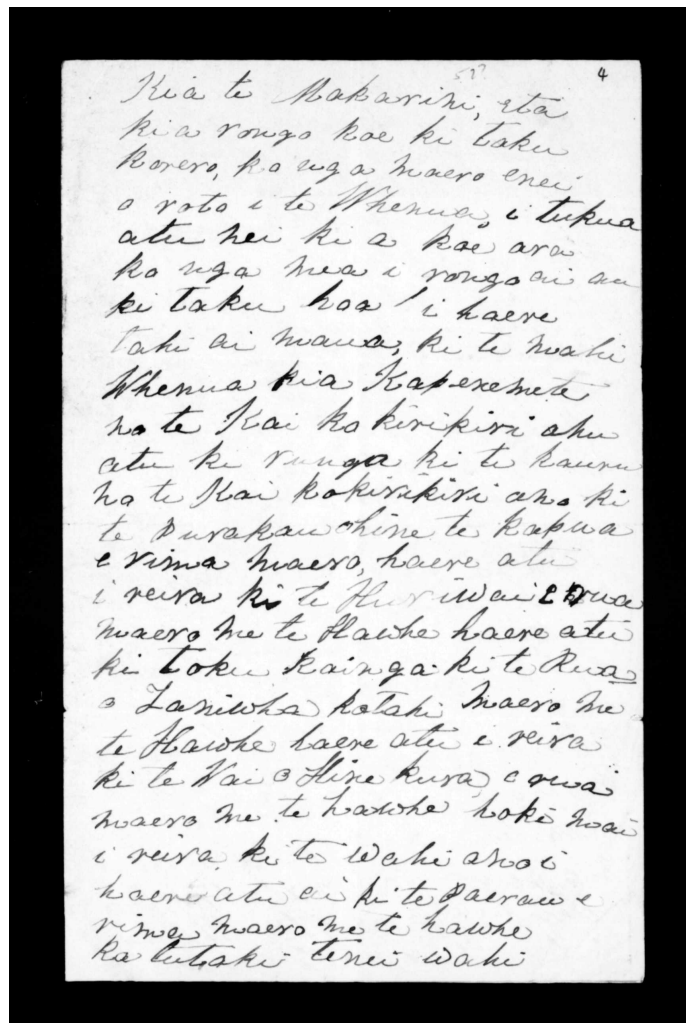 4
Kia te Makarini, eta
kia rongo koe ki taku
korero, ko nga maero enei
o roto i te Whenua, i tukua
atu nei ki a koe ara
ko nga mea i rongo ai au
ki taku hoa i haere
tahi ai maua, ki te mahi
Whenua kia Kaperemete
no te Kai kokirikiri ahu
atu ki runga ki te hauru
no te Kai kokirikiri ano ki
te Purakau Ohine te kapua
e rima maero, haere atu
i reira ki te Huriwai e rua
maero me te Hawhe haere atu
ki toku Kainga ki te Rua
o Taniwha kotahi maero me
te Hawhe haere atu i reira
ki te Wai o Hine kura, e rua
maero me te hawhe hoki mai
i reira ki te wahi ano i
haere atu ai ki te Paerau e
rima maero me te hawhe
ka tutaki tenei wahi